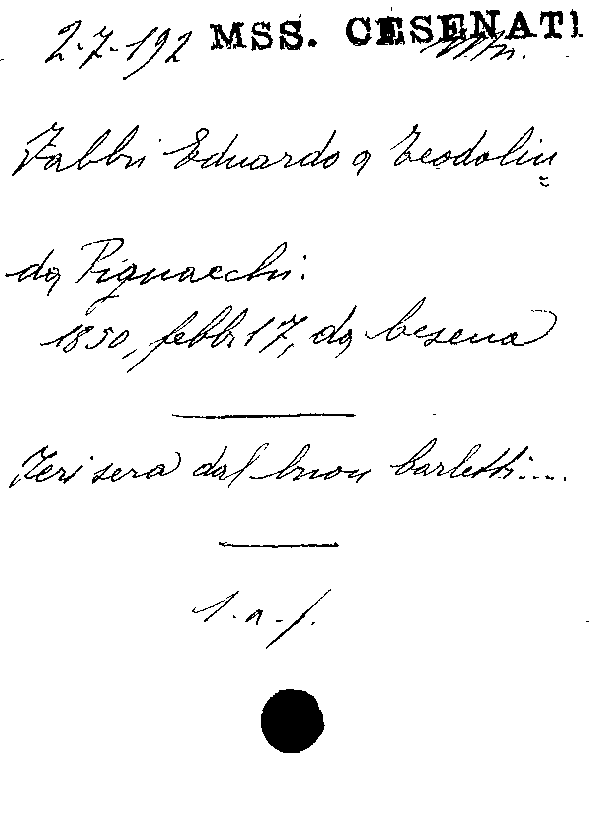 2-7-192 MSS. CESENATI
Fabbri Eduardo a Teodolin
da Pignacchi.
1850, febbr. 17, da Cesena
Jeri sera dal buon Carletti....
1. a. f.